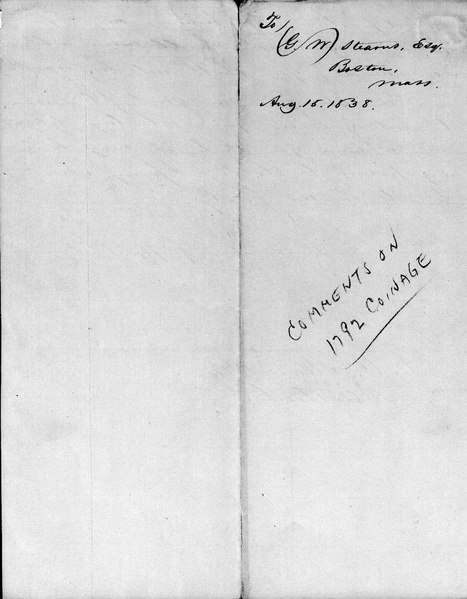 To
(G. W) Stearns, Esq.
Boston,
Mass.
Aug. 16. 1838.
COMMENTS ON
1792 COINAGE